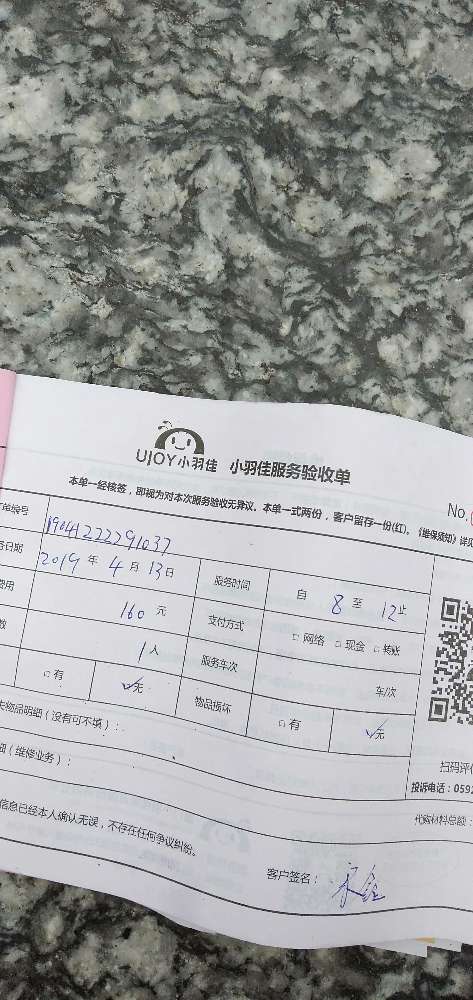 UJOY小羽佳 小羽佳服务验收单
本单一经核签，即视为对本次服务验收无异议。本单一式两份，客户留存一份(红)。《维保须知》详见
No.
单编号 19041222291037
务日期 2019 年 4 月 13 日 服务时间 自 8 至 12 止
费用 160 元 支付方式 □ 网络 □ 现金 □ 转账
数 1 人 服务车次 车/次
□ 有 ☑ 无 物品损坏 □ 有 ☑ 无
失物品明细（没有可不填）：
扫码评价
细（维修业务）：
投诉电话：0592
代购材料总额：
信息已经本人确认无误，不存在任何争议纠纷。
客户签名：